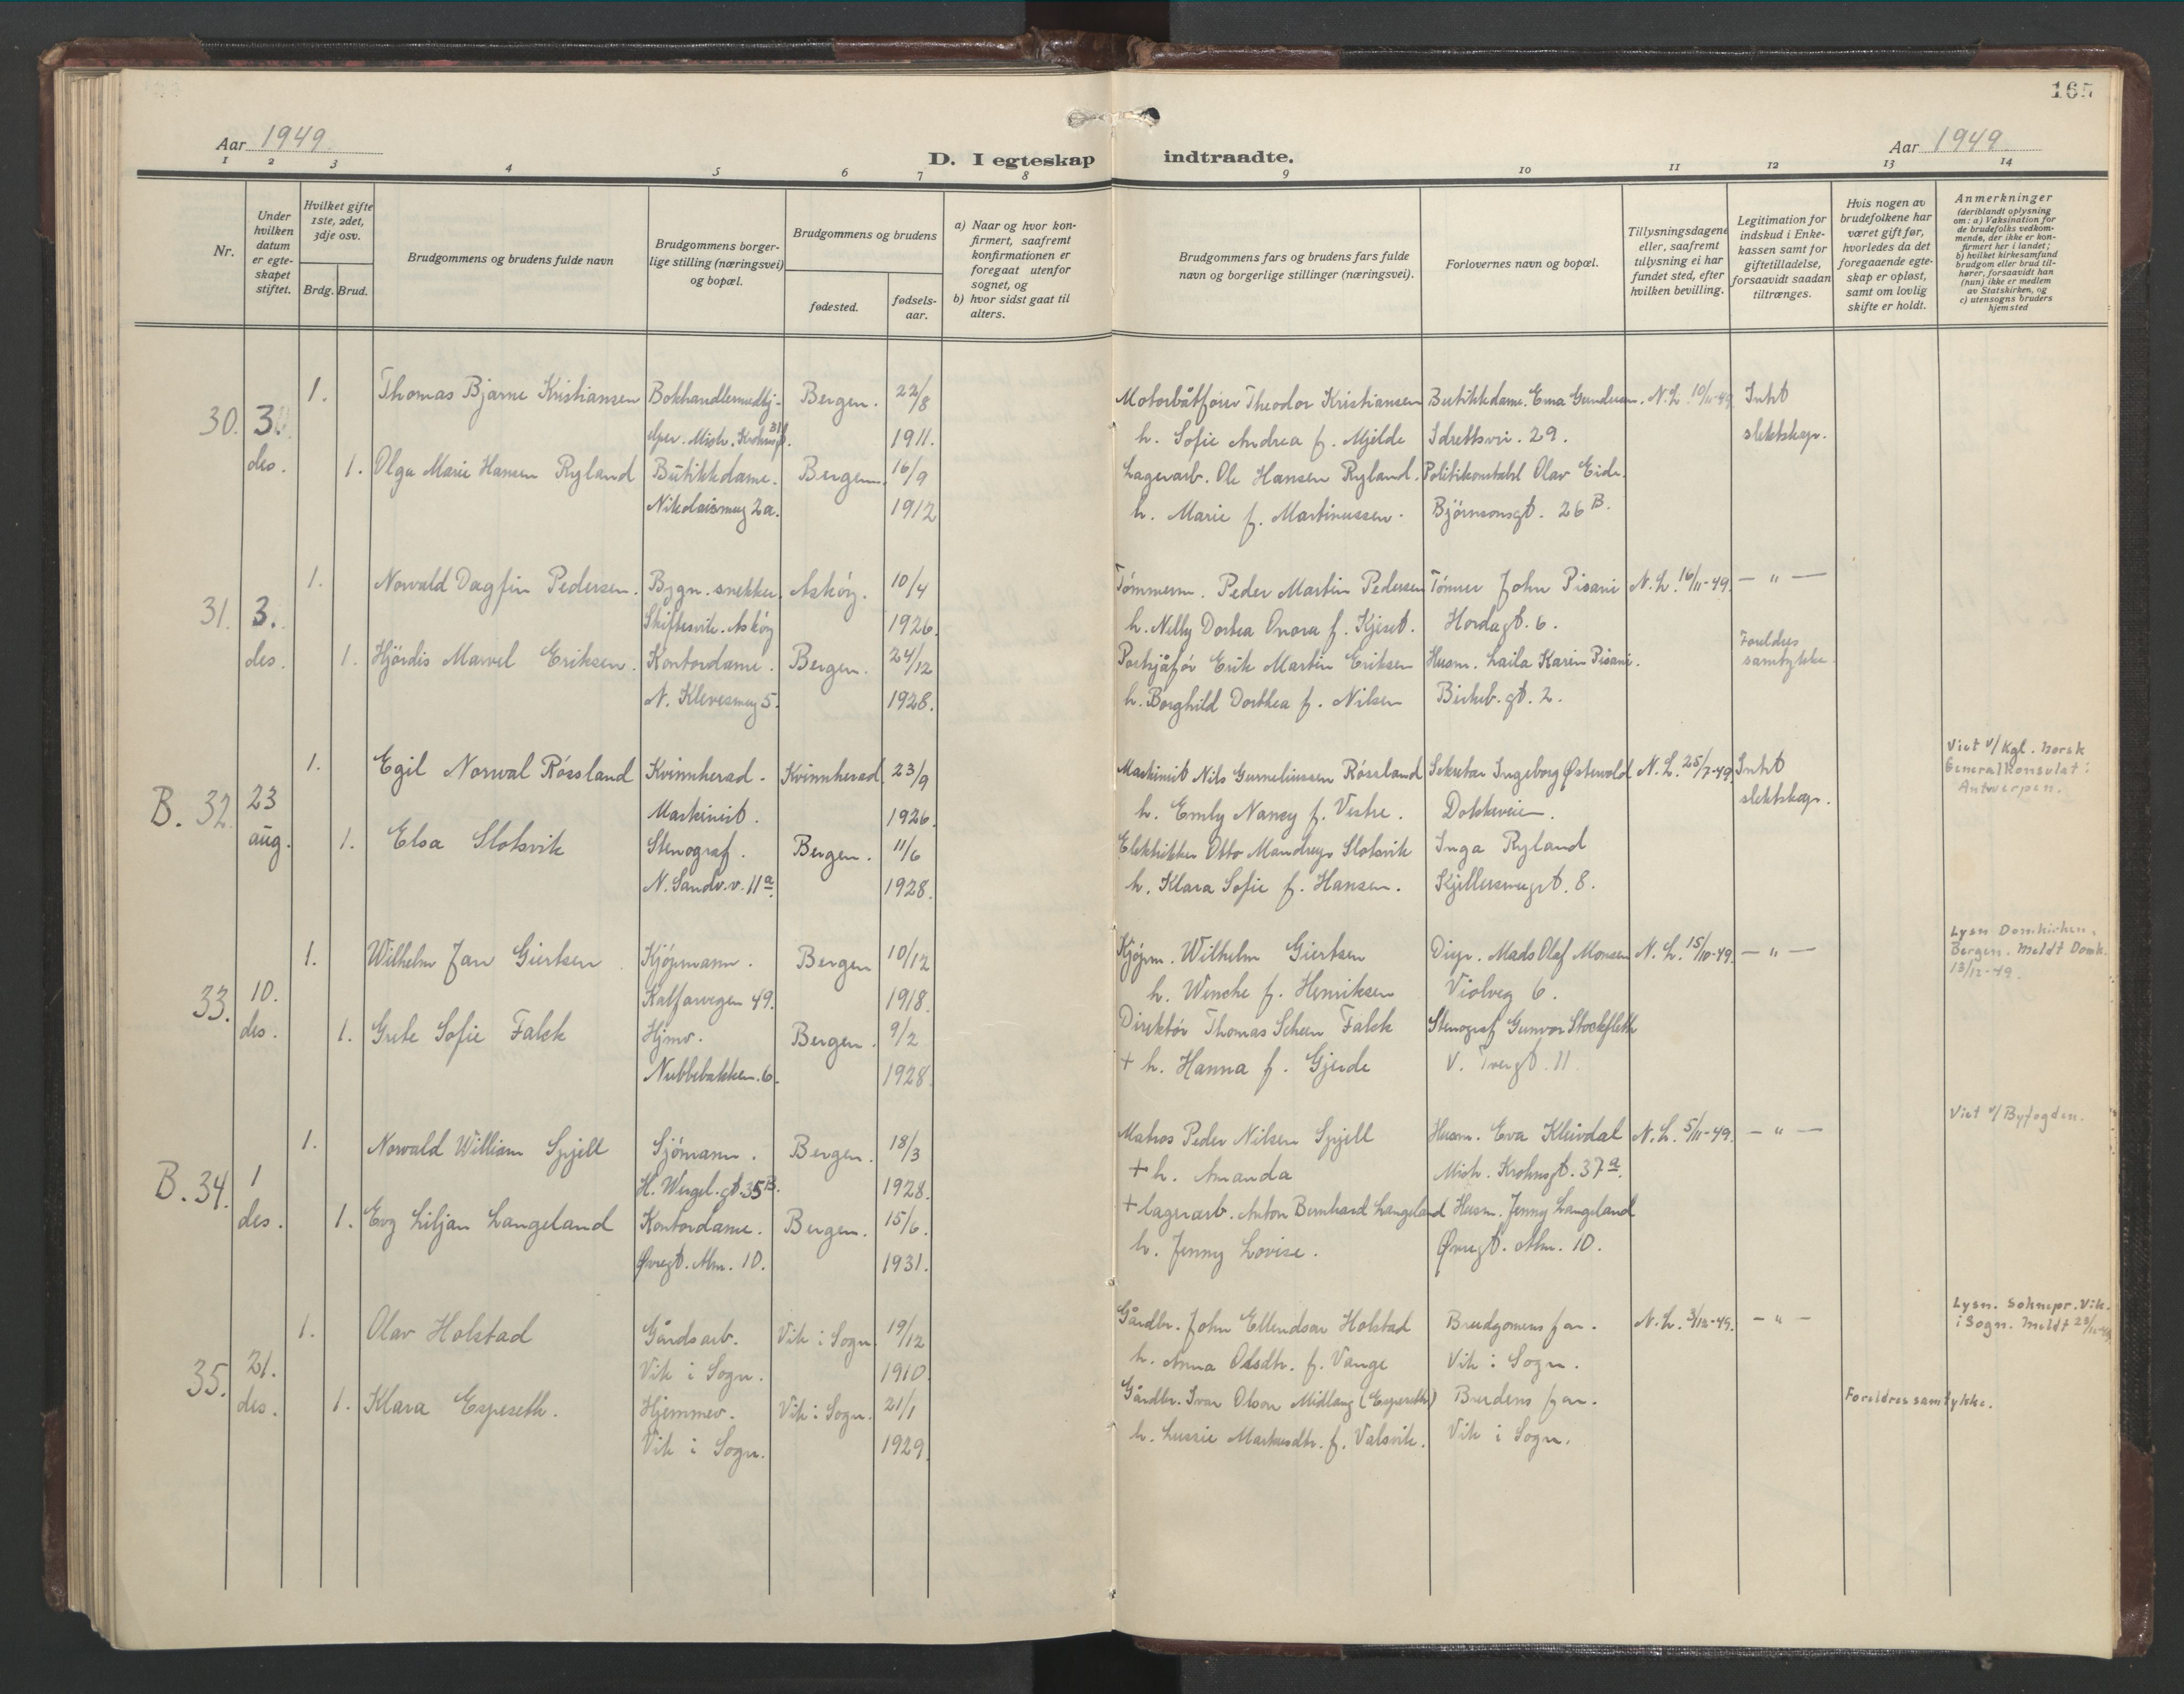 165
Aar 1949.
D. I egteskap indtraadte.
Aar 1949.
1 2 3 4 5 6 7 8 9 10 11 12 13 14
Nr.
Under hvilken datum er egte-skapet stiftet.
Hvilket gifte 1ste, 2det, 3dje osv.
Brdg. Brud.
Brudgommens og brudens fulde navn
Brudgommens borger-lige stilling (næringsvei) og bopæl.
Brudgommens og brudens
fødested.
fødsels-aar.
a) Naar og hvor kon-firmert, saafremt konfirmationen er foregaat utenfor sognet, og
b) hvor sidst gaat til alters.
Brudgommens fars og brudens fars fulde navn og borgerlige stillinger (næringsvei).
Forlovernes navn og bopæl.
Tillysningsdagene eller, saafremt tillysning ei har fundet sted, efter hvilken bevilling.
Legitimation for indskud i Enke-kassen samt for giftetilladelse, forsaavidt saadan tiltrænges.
Hvis nogen av brudefolkene har været gift før, hvorledes da det foregaaende egte-skap er opløst, samt om lovlig skifte er holdt.
Anmerkninger
(deriblandt oplysning om: a) Vaksination for de brudefolks vedkom-mende, der ikke er kon-firmert her i landet; b) hvilket kirkesamfund brudgom eller brud til-hører, forsaavidt han (hun) ikke er medlem av Statskirken, og c) utensogns bruders hjemsted
1. Thomas Bjarne Kristiansen Bokhandlermedhj- Bergen. 22/8 Motorbåtfører Theodor Kristiansen Butikkdame. Erna Gundersen. N.L. 10/11-49. Intet
30. 3. Mich. Krohnsgt. 31 1911. h. Sofie Andrea f. Mjelde Idrettsvei. 29. slektskap.
des. 1. Olga Marie Hansen Ryland Butikkdame. Bergen. 16/9 Lagerarb. Ole Hansen Ryland. Politikonstabel Olav Eide.
Nikolaismug 2a. 1912 h. Marie f. Martinussen. Bjørnsonsgt. 26 B.
1. Norvald Dagfin Pedersen. Bygn. snekker. Askøy. 10/4 Tømmerm. Peder Martin Pedersen Tømrer John Pisani N.L. 16/11-49. — " —
31. 3. Skiftesvik. Askøy 1926. h. Nelly Dortea Onora f. Kjeset. Hordagt. 6.
Foreldres
des. 1. Hjørdis Marvel Eriksen. Kontordame. Bergen. 24/12 Erik Martin Eriksen Husm. Laila Karin Pisani. samtykke.
N. Klevesmug 5. 1928. h. Borghild Dorthea f. Nilsen Birkeb. gt. 2.
Viet v/ Kgl. norsk
1. Egil Norval Røssland Kvinnherad. Kvinnherad. 23/9 Maskinist Nils Gurneliussen Røssland Sekretær Ingeborg Østervold N.L. 25/7-49. Intet Generalkonsulat:
B. 32. 23 Maskinist. 1926. h. Emly Nancy f. Vestre. Dokkeveien. slektskap. Antwerpen.
aug. 1. Elsa Slotsvik Stenograf. Bergen. 11/6 Elektriker Otto Mandrup Slotsvik Inga Ryland
N. Sandv.v. 11 a. 1928. h. Klara Sofie f. Hansen. Kjellersmugt. 8.
Lysn Domkirken.
1. Wilhelm Jan Giertsen Kjøpmann. Bergen 10/12 Kjøpm. Wilhelm Giertsen Disp. Mads Olaf Monsen N.L. 15/10-49. — " — Bergen. Meldt Domk.
33. 10. Kalfarvegen 49. 1918. h. Wenche f. Henriksen Violveg 6. 13/12-49.
des. 1. Grete Sofie Falck Hjmv. Bergen. 9/2 Direktør Thomas Scheen Falck Stenograf Gunvor Stockfleth
Nubbebakken. 6. 1928. + h. Hanna f. Gjerde V. Torvgt. 11.
Viet v/ Byfogden.
1. Norvald William Spjell Sjømann. Bergen. 18/3 Matros Peder Nilsen Spjell Husm. Eva Kleivdal N.L. 5/11-49. — " —
B. 34. 1 H. Wergel. gt. 35 B. 1928. + h. Amanda Mich. Krohnsgt. 37 a.
des. 1. Evy Liljan Langeland Kontordame. Bergen. 15/6. + lagerarb. Anton Bernhard Langeland Husm. Jenny Langeland
Øvregt. Alm. 10. 1931. h. Jenny Lovise. Øvregt. Alm. 10.
Lysn. Soknepr. Vik.
1. Olav Holstad Gårdsarb. Vik i Sogn. 19/12 Gårdbr. John Ellendson Holstad Brudgomens far. N.L. 3/12-49. — " — i Sogn. Meldt
35. 21. Vik i Sogn. 1910. h. Anna Olsdtr. f. Vange Vik i Sogn.
des. 1. Klara Espeseth. Hjemmev. Vik i Sogn. 21/1 Gårdbr. Ivar Olson Midlang (Espeseth) Brudens far. Foreldres samtykke.
Vik i Sogn. 1929. h. Lussie Markusdtr. f. Valsvik. Vik i Sogn.